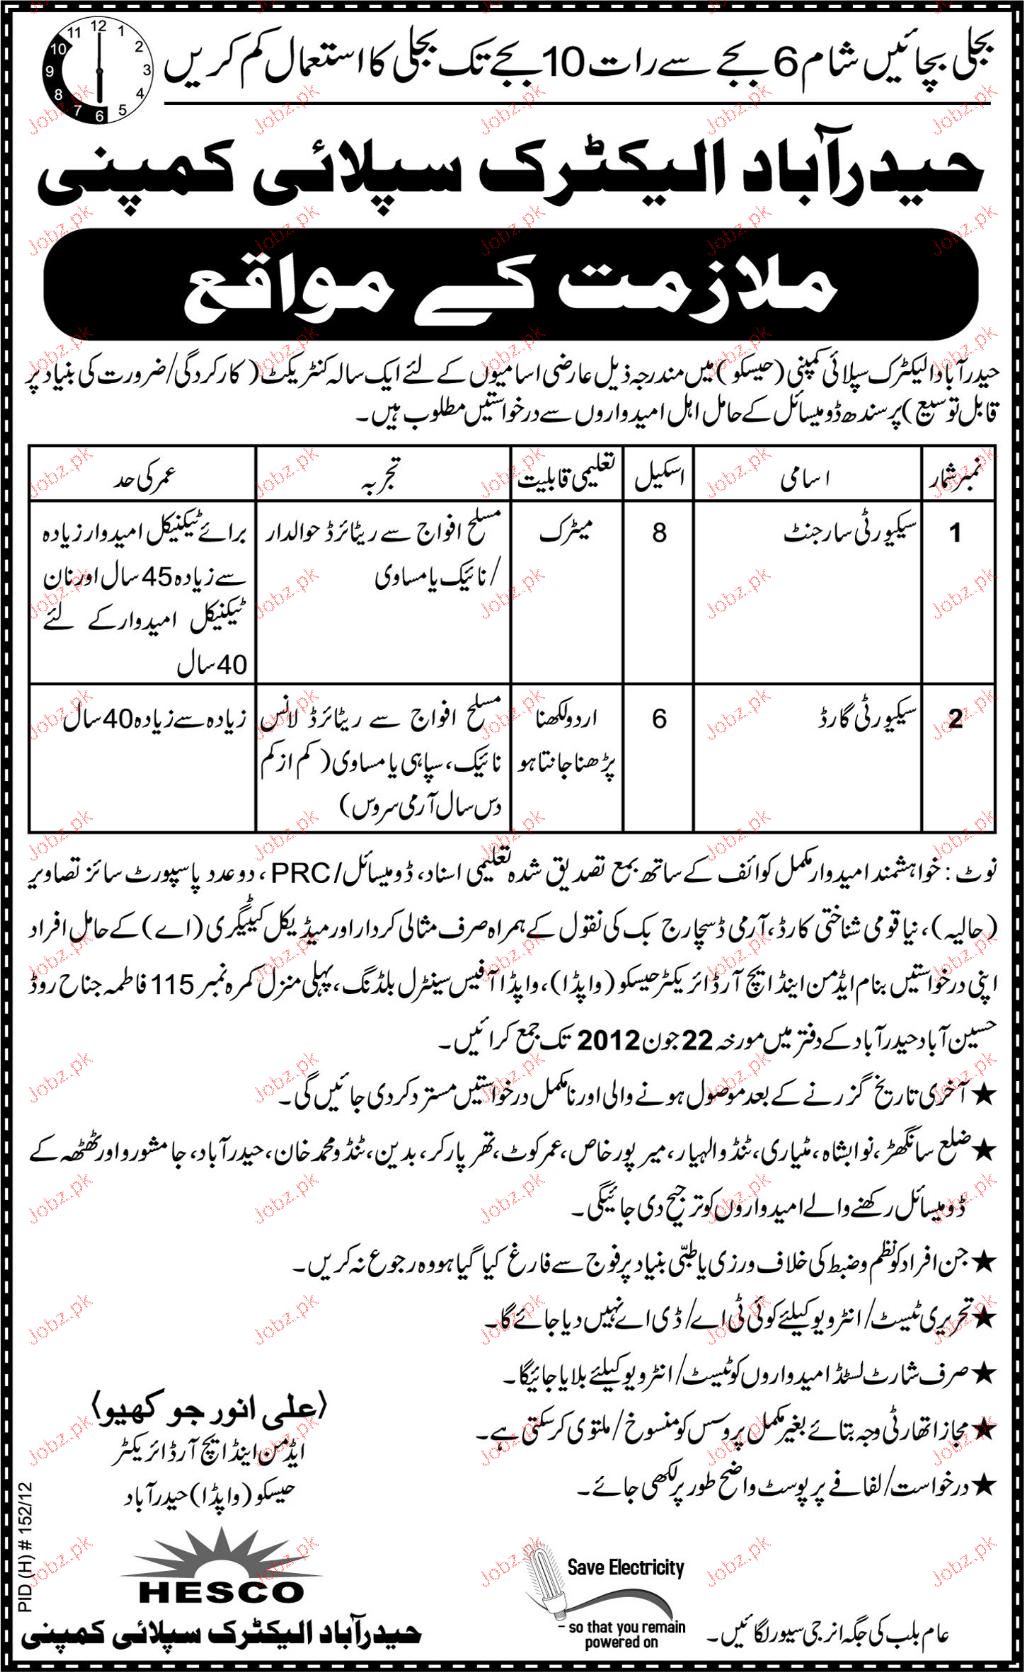 بجلی بچائیں شام 6 بجے سے رات 10 بجے تک بجلی کا استعمال کم کریں
12 1 2 3 4 5 6 7 8 9 10 11
حیدرآباد الیکٹرک سپلائی کمپنی
ملازمت کے مواقع
حیدرآباد الیکٹرک سپلائی کمپنی (حیسکو) میں مندرجہ ذیل عارضی اسامیوں کے لئے ایک سالہ کنٹریکٹ (کارکردگی/ضرورت کی بنیاد پر
قابل توسیع) پر سندھ ڈومیسائل کے حامل اہل امیدواروں سے درخواستیں مطلوب ہیں۔
نمبر شمار اسامی اسکیل تعلیمی قابلیت تجربہ عمر کی حد
1 سیکیورٹی سارجنٹ 8 میٹرک مسلح افواج سے ریٹائرڈ حوالدار برائے ٹیکنیکل امیدوار زیادہ
/نائیک یا مساوی سے زیادہ 45 سال اور نان
ٹیکنیکل امیدوار کے لئے
40 سال
2 سیکیورٹی گارڈ 6 اردو لکھنا مسلح افواج سے ریٹائرڈ لانس زیادہ سے زیادہ 40 سال
پڑھنا جانتا ہو نائیک، سپاہی یا مساوی (کم از کم
دس سال آرمی سروس)
نوٹ: خواہشمند امیدوار مکمل کوائف کے ساتھ بمع تصدیق شدہ تعلیمی اسناد، ڈومیسائل/PRC، دو عدد پاسپورٹ سائز تصاویر
(حالیہ)، نیا قومی شناختی کارڈ، آرمی ڈسچارج بک کی نقول کے ہمراہ صرف مثالی کردار اور میڈیکل کیٹیگری (اے) کے حامل افراد
اپنی درخواستیں بنام ایڈمن اینڈ ایچ آر ڈائریکٹر حیسکو (واپڈا)، واپڈا آفیس سینٹرل بلڈنگ، پہلی منزل کمرہ نمبر 115 فاطمہ جناح روڈ
حسین آباد حیدرآباد کے دفتر میں مورخہ 22 جون 2012 تک جمع کرائیں۔
★ آخری تاریخ گزرنے کے بعد موصول ہونے والی اور نامکمل درخواستیں مسترد کردی جائیں گی۔
★ ضلع سانگھڑ، نوابشاہ، مٹیاری، ٹنڈوالہیار، میرپورخاص، عمرکوٹ، تھرپارکر، بدین، ٹنڈو محمد خان، حیدرآباد، جامشورو اور ٹھٹھہ کے
ڈومیسائل رکھنے والے امیدواروں کو ترجیح دی جائیگی۔
★ جن افراد کو نظم و ضبط کی خلاف ورزی یا طبّی بنیاد پر فوج سے فارغ کیا گیا ہو وہ رجوع نہ کریں۔
★ تحریری ٹیسٹ/انٹرویو کیلئے کوئی ٹی اے/ڈی اے نہیں دیا جائے گا۔
★ صرف شارٹ لسٹڈ امیدواروں کو ٹیسٹ/انٹرویو کیلئے بلایا جائیگا۔
★ مجاز اتھارٹی وجہ بتائے بغیر مکمل پروسس کو منسوخ/ملتوی کرسکتی ہے۔
★ درخواست/لفافے پر پوسٹ واضح طور پر لکھی جائے۔
(علی انور جوکھیو)
ایڈمن اینڈ ایچ آر ڈائریکٹر
حیسکو (واپڈا) حیدرآباد
PID (H) # 152/12
HESCO
حیدرآباد الیکٹرک سپلائی کمپنی
Save Electricity
– so that you remain
powered on
عام بلب کی جگہ انرجی سیور لگائیں۔
Jobz.pk